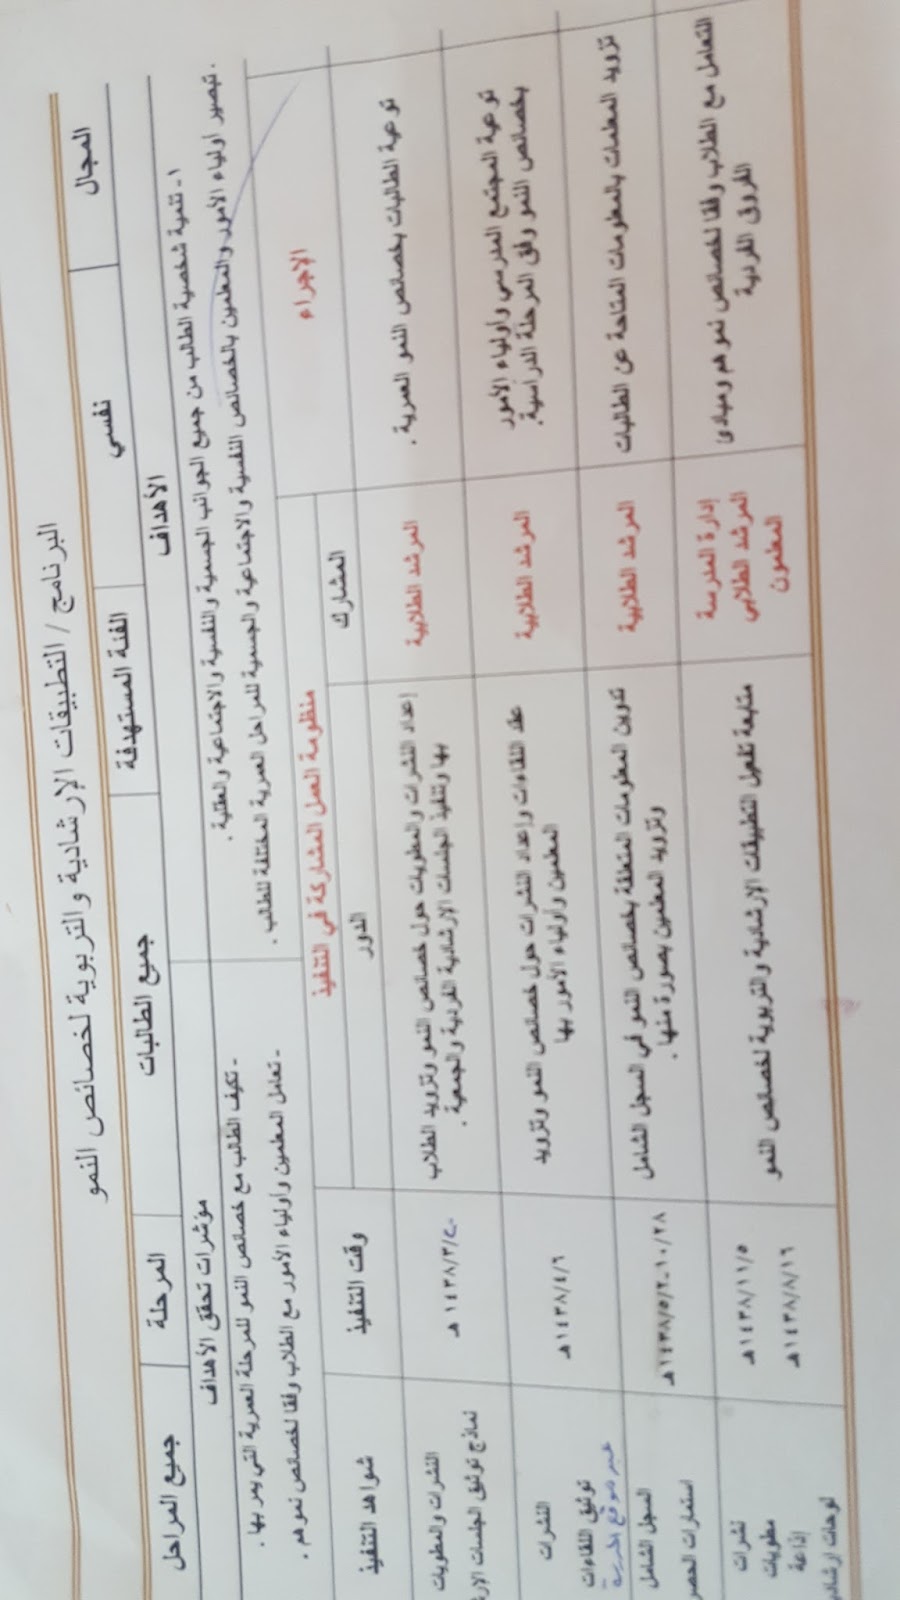 البرنامج / التطبيقات الإرشادية والتربوية لخصائص النمو
المجال
نفسي
الفئة المستهدفة
جميع الطالبات
المرحلة
جميع المراحل
الأهداف
مؤشرات تحقق الأهداف
١- تنمية شخصية الطالب من جميع الجوانب الجسمية والنفسية والاجتماعية والعقلية .
. تبصير أولياء الأمور والمعلمين بالخصائص النفسية والاجتماعية والجسمية للمراحل العمرية المختلفة للطالب .
- تكيف الطالب مع خصائص النمو للمرحلة العمرية التي يمر بها .
- تعامل المعلمين وأولياء الأمور مع الطلاب وفقا لخصائص نموهم .
الإجراء
منظومة العمل المشاركة في التنفيذ
المشارك
الدور
وقت التنفيذ
شواهد التنفيذ
توعية الطالبات بخصائص النمو العمرية .
المرشد الطلابية
إعداد النشرات والمطويات حول خصائص النمو وتزويد الطلاب
بها وتنفيذ الجلسات الإرشادية الفردية والجمعية .
النشرات والمطويات
نماذج توثيق الجلسات
توعية المجتمع المدرسي وأولياء الأمور
بخصائص النمو وفق المرحلة الدراسية.
المرشد الطلابية
عقد اللقاءات وإعداد النشرات حول خصائص النمو وتزويد
المعلمين وأولياء الأمور بها
١٤٣٨/٤/٦هـ
النشرات
توثيق اللقاءات
عبر موقع
تزويد المعلمات بالمعلومات المتاحة عن الطالبات
المرشد الطلابية
تدوين المعلومات المتعلقة بخصائص النمو في السجل الشامل
وتزويد المعلمين بصورة منها .
السجل الشامل
استمارات الحصر
التعامل مع الطلاب وفقا لخصائص نموهم ومبادئ
الفروق الفردية
إدارة المدرسة
المرشد الطلابي
المعلمون
متابعة تفعيل التطبيقات الإرشادية والتربوية لخصائص النمو
١٤٣٨/١١/٥هـ
١٤٣٨/٨/١٦هـ
نشرات
مطويات
إذاعة
لوحات